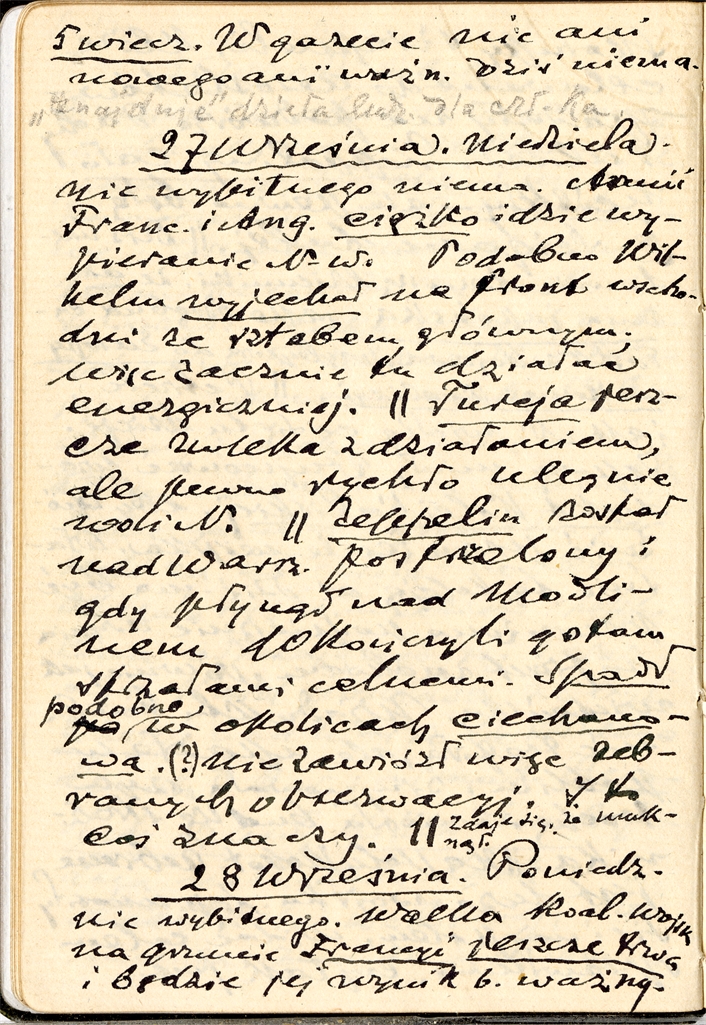 5 wiecz. W gazecie nic ani
nowego ani ważn. dziś niema.
"znajduje" dzieła ludz. dla czł-ka.
27 Września. Niedziela.
nic wybitnego niema. Armii
Franc. i Ang. ciężko idzie wy-
pieranie N-w. Podobno Wil-
helm wyjechał na front wscho-
dni ze sztabem głównym;
więc zacznie tu działać
energiczniej. || Turcja jesz-
cze zwleka z działaniem,
ale pewno rychło ulegnie
woli N. || Zeppelin został
nad Warsz. postrzelony i
gdy płynął nad Modli-
nem dokończyli go tam
strzałami celnemi. Spadł
podobno w okolicach Ciechano-
wa. (?) nie zawiózł więc zeb-
ranych obserwacyj. I to
coś znaczy. || Zdaje się, że umk-
nął.
28 Września. Poniedz.
nic wybitnego. Walka koal. wojsk
na gruncie Francyi jeszcze trwa
i będzie jej wynik b. ważny.